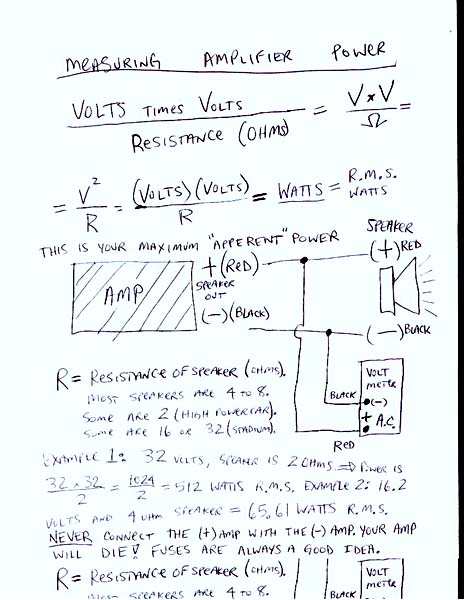 MEASURING AMPLIFIER POWER
VOLTS TIMES VOLTS / RESISTANCE (OHMS) = V x V / Ω =
= V² / R = (VOLTS)(VOLTS) / R = WATTS = R.M.S. WATTS
THIS IS YOUR MAXIMUM "APPERENT" POWER
SPEAKER
AMP
+ (RED)
(+) RED
SPEAKER OUT
(-) (BLACK)
(-) BLACK
R = RESISTANCE OF SPEAKER (OHMS).
MOST SPEAKERS ARE 4 TO 8.
SOME ARE 2 (HIGH POWER CAR).
SOME ARE 16 OR 32 (STADIUM).
VOLT
METER
BLACK (-)
+ A.C.
RED
EXAMPLE 1: 32 VOLTS, SPEAKER IS 2 OHMS ⇒ POWER IS
32 x 32 / 2 = 1024 / 2 = 512 WATTS R.M.S. EXAMPLE 2: 16.2
VOLTS AND 4 OHM SPEAKER = 65.61 WATTS R.M.S.
NEVER CONNECT THE (+) AMP WITH THE (-) AMP. YOUR AMP
WILL DIE! FUSES ARE ALWAYS A GOOD IDEA.
R = RESISTANCE OF SPEAKER (OHMS).
MOST SPEAKERS ARE 4 TO 8.
VOLT
METER
BLACK (-)